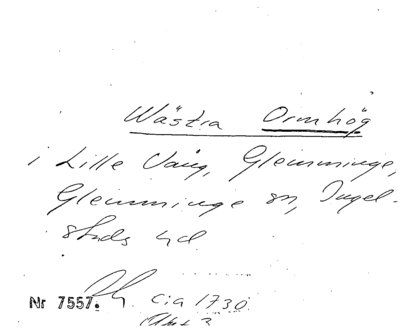 Wästra Ormhög
i Lille Vång, Glemminge,
Glemminge sn, Ingel-
stads hd
Nr 7557. cia 1730